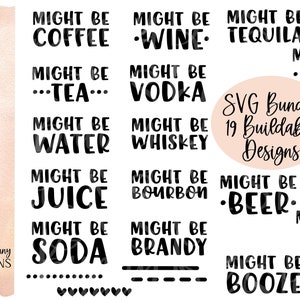 MIGHT BE
COFFEE
MIGHT BE
TEA
MIGHT BE
WATER
MIGHT BE
JUICE
MIGHT BE
SODA
MIGHT BE
WINE
MIGHT BE
VODKA
MIGHT BE
WHISKEY
MIGHT BE
BOURBON
MIGHT BE
BRANDY
MIGHT B
TEQUILA
M
SVG Bun
19 Buildab
Designs
MIGHT BE
BEER
M
MIGHT BE
BOOZE